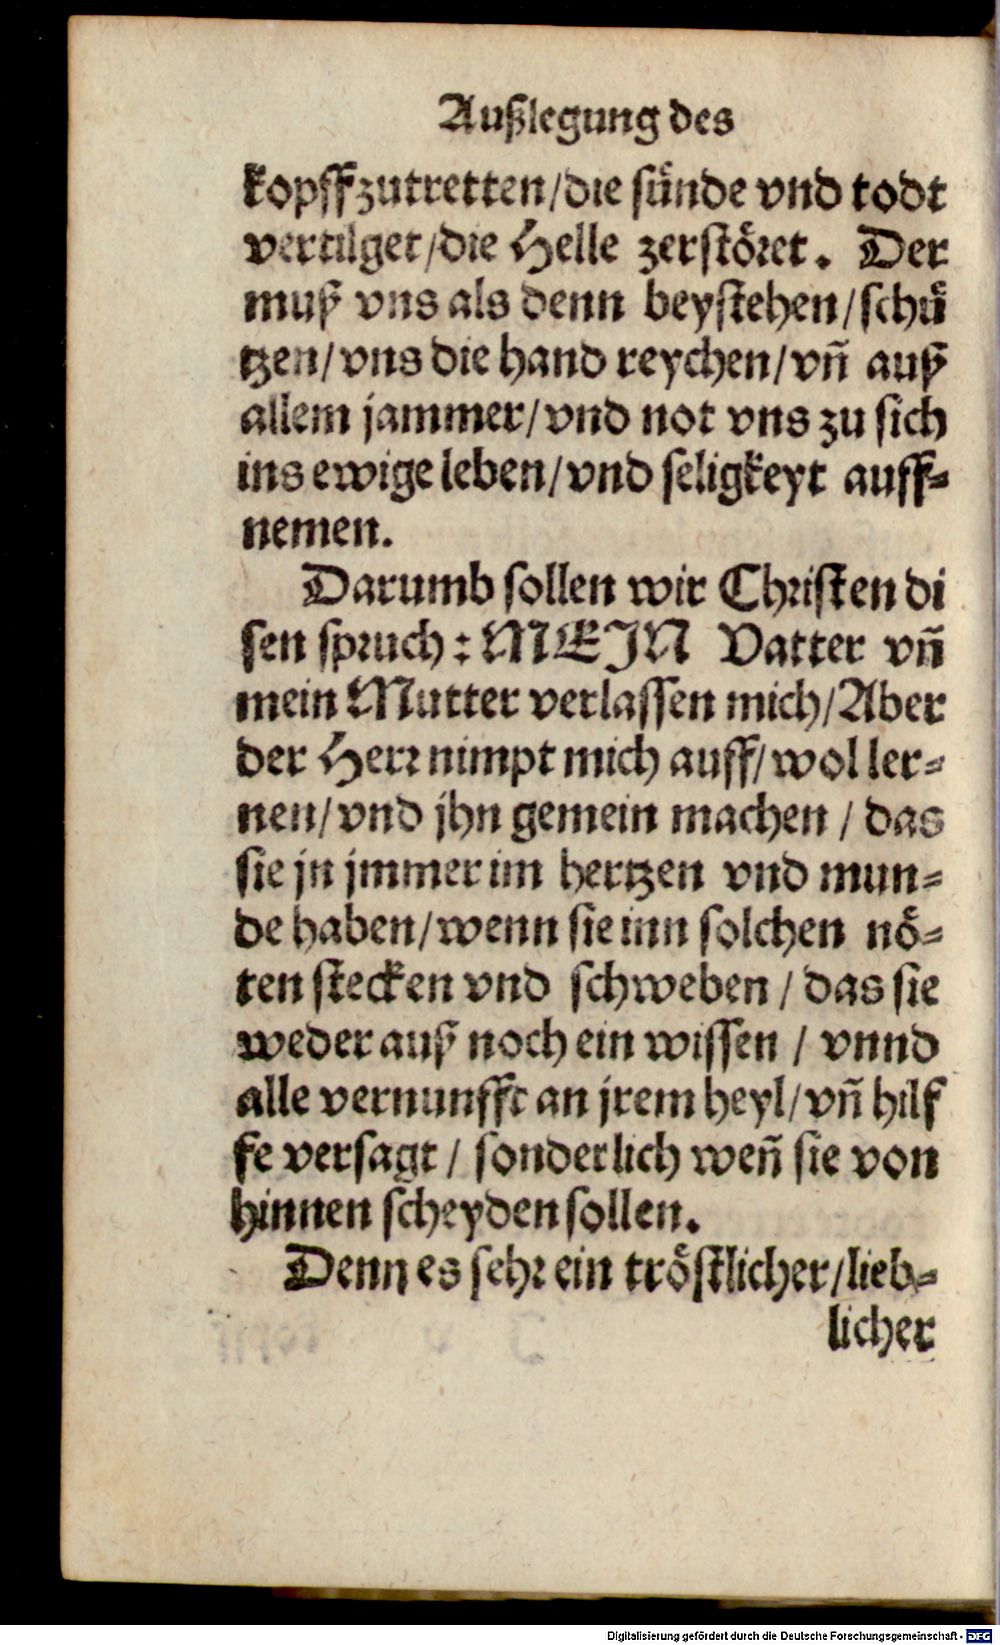 Außlegung des
kopff zutretten/die sünde vnd todt
vertilget/die Helle zerstöret. Der
muß vns als denn beystehen/schü
tzen/vns die hand reychen/vñ auß
allem jammer/vnd not vns zu sich
ins ewige leben/vnd seligkeyt auff-
nemen.
Darumb sollen wir Christen di
sen spruch: MEIN Vatter vñ
mein Mutter verlassen mich/Aber
der Herr nimpt mich auff/wol ler-
nen/vnd jhn gemein machen/das
sie jn jmmer im hertzen vnd mun-
de haben/wenn sie inn solchen nö-
ten stecken vnd schweben/das sie
weder auß noch ein wissen/vnnd
alle vernunfft an jrem heyl/vñ hilf
fe versagt/sonderlich weñ sie von
hinnen scheyden sollen.
Denn es sehr ein tröstlicher/lieb-
licher
Digitalisierung gefördert durch die Deutsche Forschungsgemeinschaft - DFG